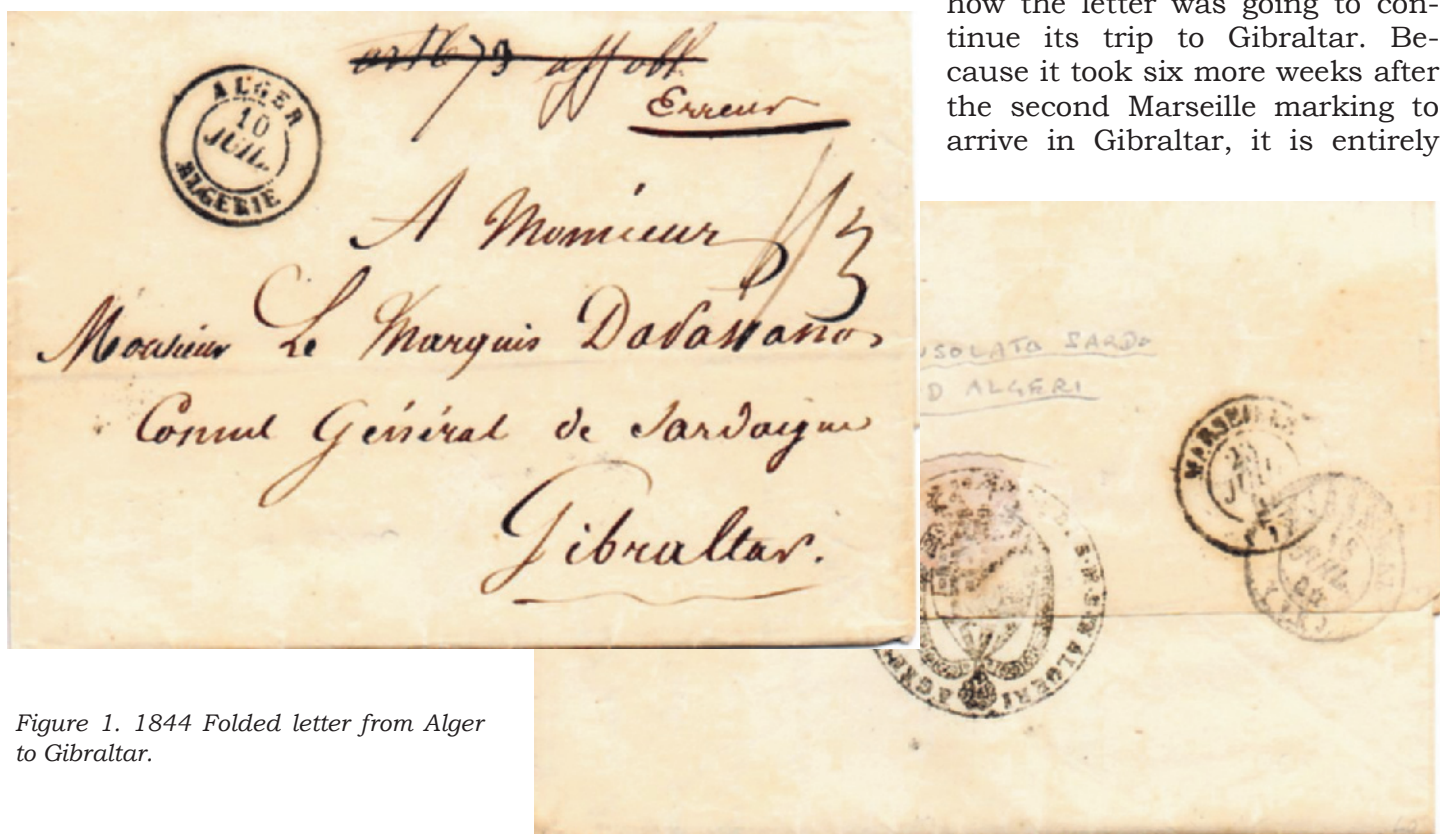 how the letter was going to con-
tinue its trip to Gibraltar. Be-
cause it took six more weeks after
the second Marseille marking to
arrive in Gibraltar, it is entirely
Erreur
ALGER
10
JUIL.
ALGERIE
A Monsieur
Monsieur Le Marquis
Consul Général de Sardaigne
Gibraltar.
SOLATO SARDO
D ALGERI
MARSEILLE
ALGERI
Figure 1. 1844 Folded letter from Alger
to Gibraltar.